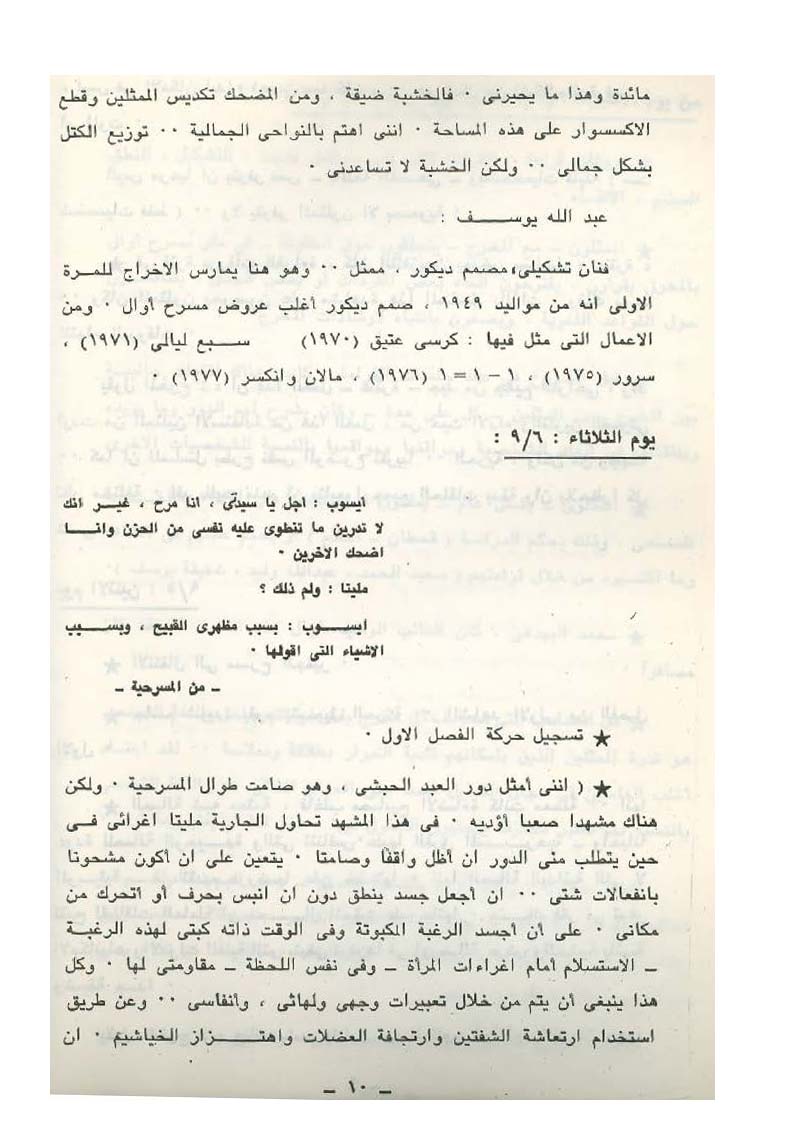 مائدة وهذا ما يحيرنى ٠ فالخشبة ضيقة ، ومن المضحك تكديس الممثلين وقطع
الاكسسوار على هذه المساحة ٠ اننى اهتم بالنواحى الجمالية ٠٠ توزيع الكتل
بشكل جمالى ٠٠ ولكن الخشبة لا تساعدنى ٠
عبد الله يوســـف :
فنان تشكيلى، مصمم ديكور ، ممثل ٠٠ وهو هنا يمارس الاخراج للمـرة
الاولى انه من مواليد ١٩٤٩ ، صمم ديكور أغلب عروض مسرح أوال ٠ ومن
الاعمال التى مثل فيها : كرسى عتيق (١٩٧٠) ســـبع ليالى (١٩٧١) ،
سرور (١٩٧٥) ، ١ – ١ = ١ (١٩٧٦) ، مالان وانكسر (١٩٧٧) ٠
يوم الثلاثاء : ٩/٦ :
أيسوب : اجل يا سيدتى ، انا مرح ، غيـــر انك
لا تدرين ما تنطوى عليه نفسى من الحزن وانـــا
اضحك الاخرين ٠
مليتا : ولم ذلك ؟
أيســـوب : بسبب مظهرى القبيح ، وبســـبب
الاشياء التى اقولها ٠
– من المسرحية –
★ تسجيل حركة الفصل الاول ٠
★ ( اننى أمثل دور العبد الحبشى ، وهو صامت طوال المسرحية ٠ ولكن
هناك مشهدا صعبا أؤديه ٠ فى هذا المشهد تحاول الجارية مليتا اغرائى فــى
حين يتطلب منى الدور ان أظل واقفا وصامتا ٠ يتعين على ان أكون مشحونا
بانفعالات شتى ٠٠ ان اجعل جسد ينطق دون ان انبس بحرف أو أتحرك من
مكانى ٠ على أن أجسد الرغبة المكبوتة وفى الوقت ذاته كبتى لهذه الرغبـة
– الاستسلام أمام اغراءات المرأة – وفى نفس اللحظة – مقاومتى لها ٠ وكل
هذا ينبغى أن يتم من خلال تعبيرات وجهى ولهاثى ، وأنفاسى ٠٠ وعن طريق
استخدام ارتعاشة الشفتين وارتجافة العضلات واهتـــــزاز الخياشيم ٠ ان
– ١٠ –